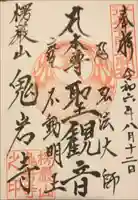 奉拝
令和六年八月十二日
弘法大師
本尊聖観音
不動明王
楞厳山
鬼岩寺